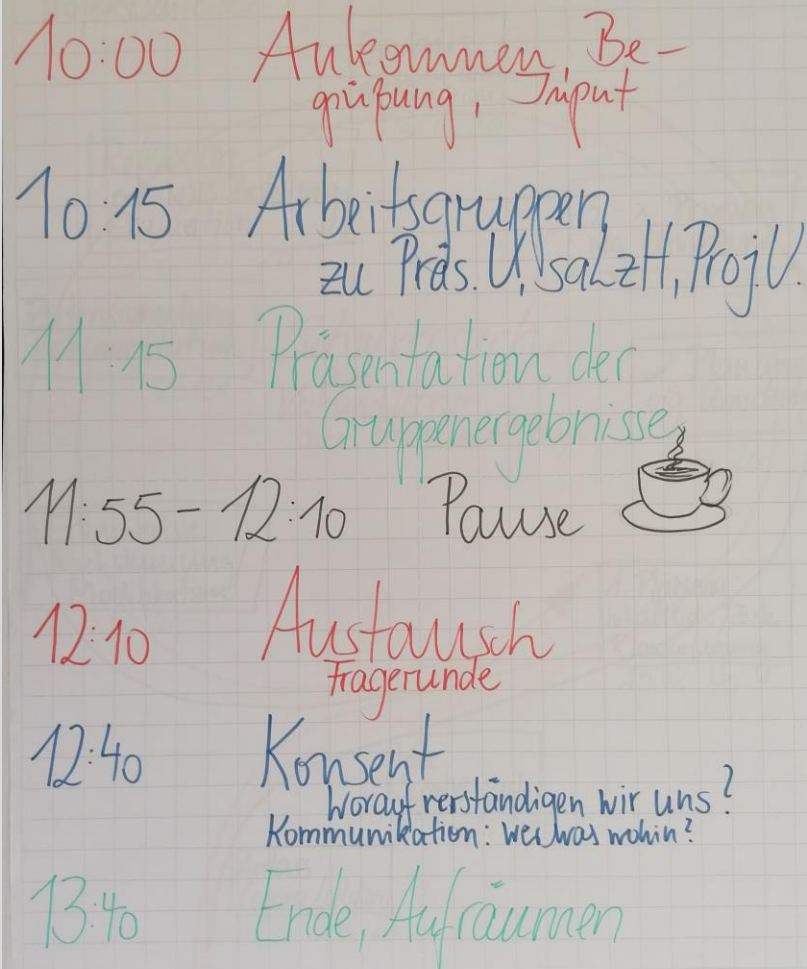 10:00 Ankommen, Be-
grüßung, Input
10:15 Arbeitsgruppen
zu Präs.U, saLzH, Proj.U.
11:15 Präsentation der
Gruppenergebnisse
11:55 - 12:10 Pause
12:10 Austausch
Fragerunde
12:40 Konsent
Worauf verständigen wir uns?
Kommunikation: wer was wohin?
13:40 Ende, Aufräumen